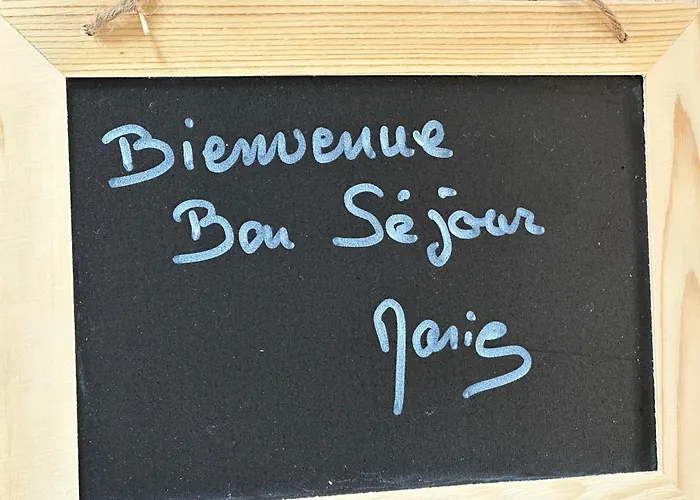 Bienvenue
Bon Séjour
Marie